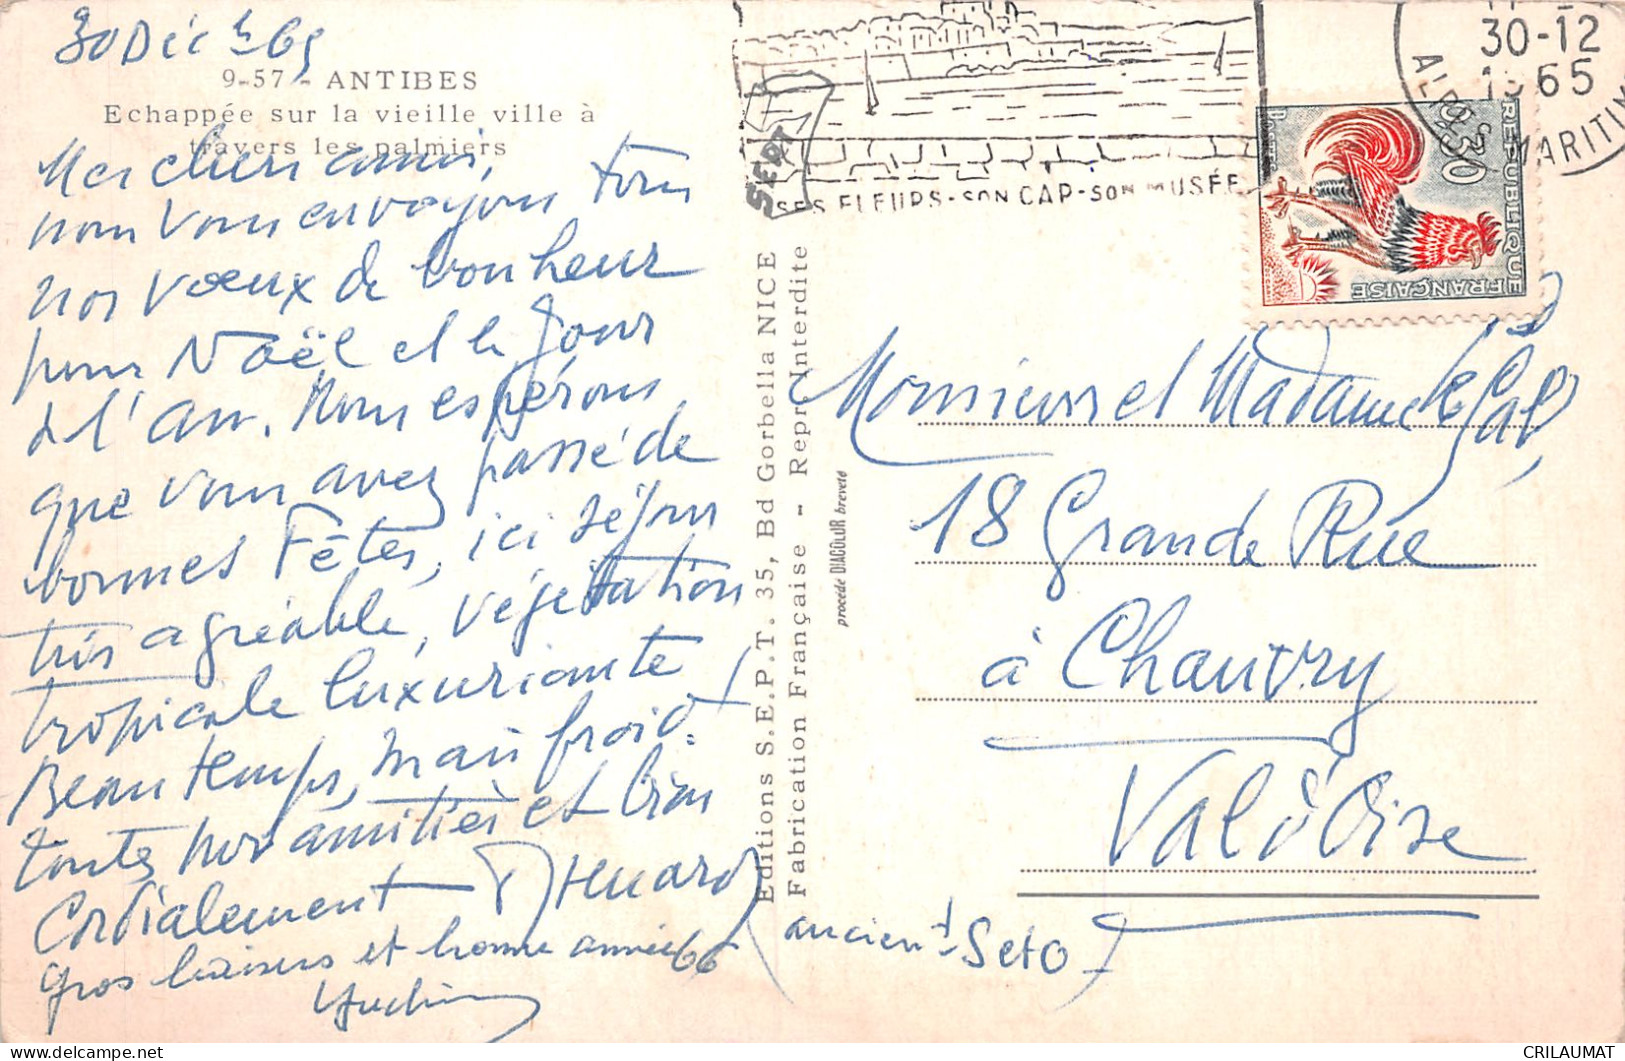 30 Déc 65
9-57 - ANTIBES
Echappée sur la vieille ville à
travers les palmiers
Mes chers amis,
nous vous envoyons tous
nos vœux de bonheur
pour Noël et le Jour
de l'an. Nous espérons
que vous avez passé de
bonnes Fêtes, ici séjour
très agréable, végétation
tropicale luxuriante
Beau temps, mais froid!
toutes nos amitiés et bien
Cordialement
gros baisers et bonne année 66
Editions S.E.P.T. 35, Bd Gorbella NICE
Fabrication Française - Repr. Interdite
procédé DIACOLOR breveté
SEPT
SES FLEURS-SON CAP-SON MUSÉE
30-12
1965
ALPES MARITIM
REPUBLIQUE FRANÇAISE
0,30
POSTES
Monsieur et Madame Le Gal,
18 Grande Rue
à Chauvry
Val d'Oise
(ancient Seto)
CRILAUMAT